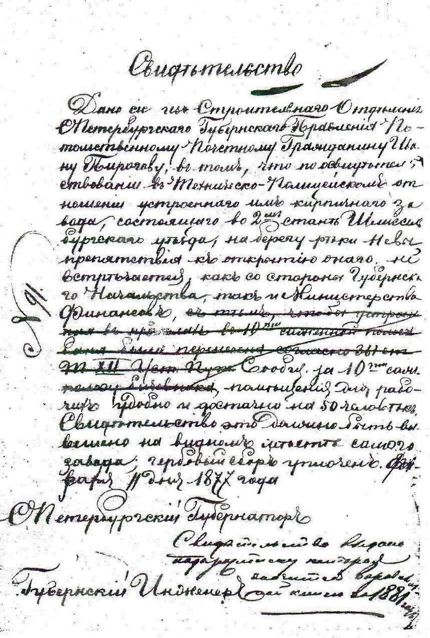 Свидѣтельство
Дано сіе изъ Строительнаго Отдѣленія
СПетербургскаго Губернскаго Правленія По-
томственному Почетному Гражданину Ива-
ну Пирогову, въ томъ, что по освидѣтель-
ствованіи въ Технически-Полицейскомъ от-
ношеніи устроеннаго имъ кирпичнаго за-
вода, состоящаго во 2мъ станѣ Шлиссель-
бургскаго уѣзда, на берегу рѣки Невы
препятствія къ открытію онаго, не
встрѣчается, какъ со стороны Губернска-
го Начальства, такъ и Министерства
Финансовъ, съ тѣмъ, чтобы
въ 10
была перенесена согласно 381 ст
Т XII Уст. Пут. Сообщ. за 10
помѣщенія для рабо-
чихъ удобно и достачно на 50 человѣкъ.
Свидѣтельство это должно быть вы-
вѣшено на видномъ мѣстѣ самого
завода; гербовый сборъ уплоченъ. Фев
раля 11 дня 1877 года
№ 91.
СПетербургскій Губернаторъ
Свидѣтельство выдано
Губернскій Инженеръ
1881